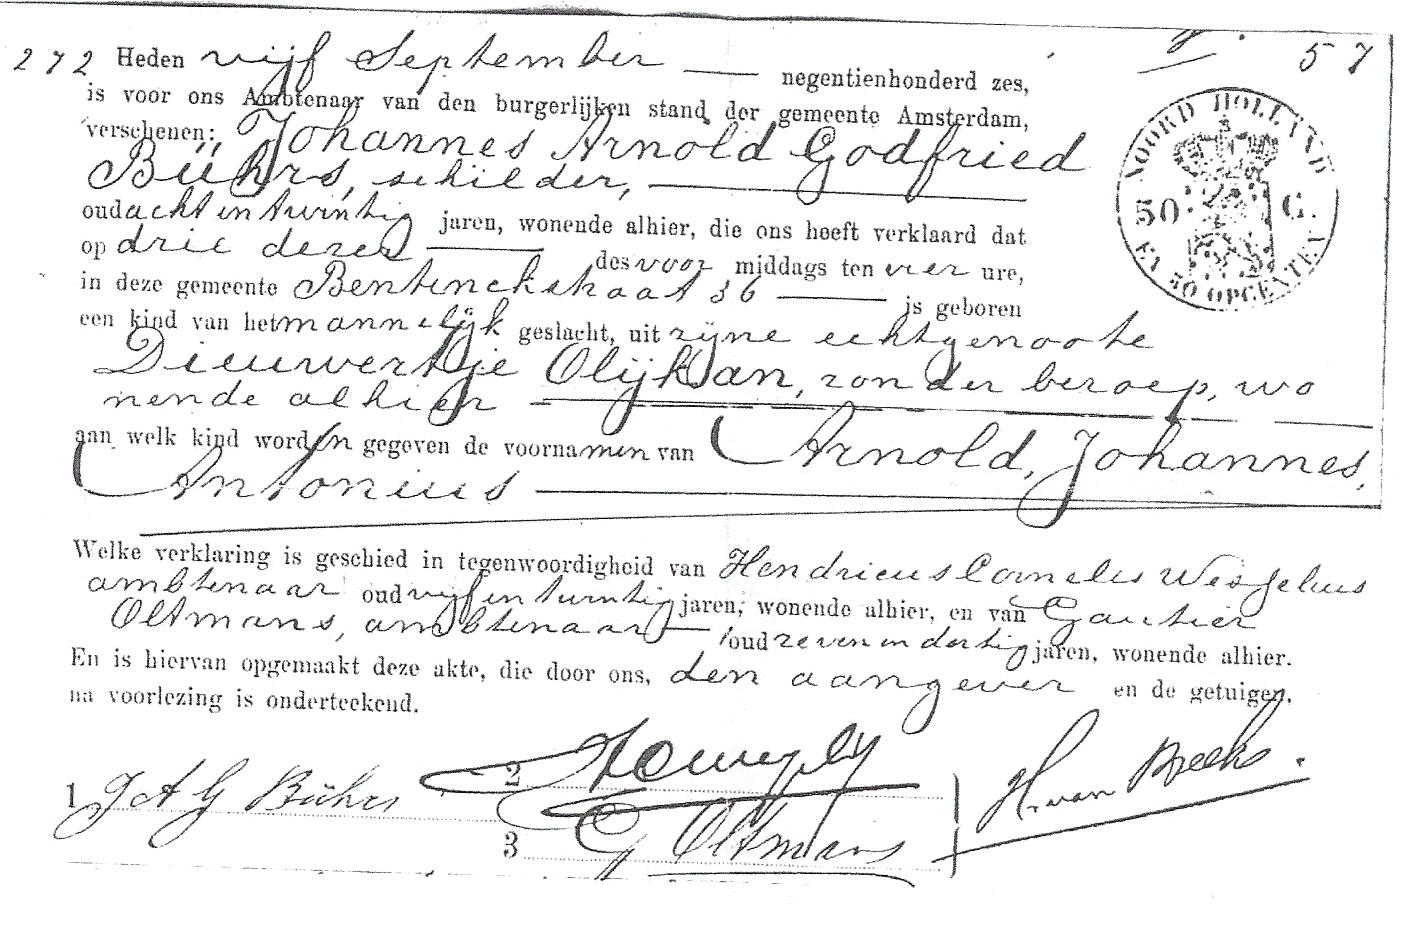 272 Heden vijf September negentienhonderd zes, 57
is voor ons Ambtenaar van den burgerlijken stand der gemeente Amsterdam,
verschenen: Johannes Arnold Godfried
Bührs, schilder,
oud acht en twintig jaren, wonende alhier, die ons heeft verklaard dat
op drie dezer des voor middags ten vier ure,
in deze gemeente Bentinckstraat 36 is geboren
een kind van het mannelijk geslacht, uit zijne echtgenoote
Dieuwertje Olijkan, zonder beroep, wo
nende alhier
aan welk kind worden gegeven de voornamen van Arnold, Johannes,
Antonius
Welke verklaring is geschied in tegenwoordigheid van Hendricus Cornelis
ambtenaar oud vijf en twintig jaren, wonende alhier, en van Gautier
Oltmans, ambtenaar oud zeven en dertig jaren, wonende alhier.
En is hiervan opgemaakt deze akte, die door ons, den aangever en de getuigen,
na voorlezing is onderteekend.
1 J A G Bührs
2
3 G Oltmans
H. van
NOORD HOLLAND
50 C.
EN 50 OPCENTEN